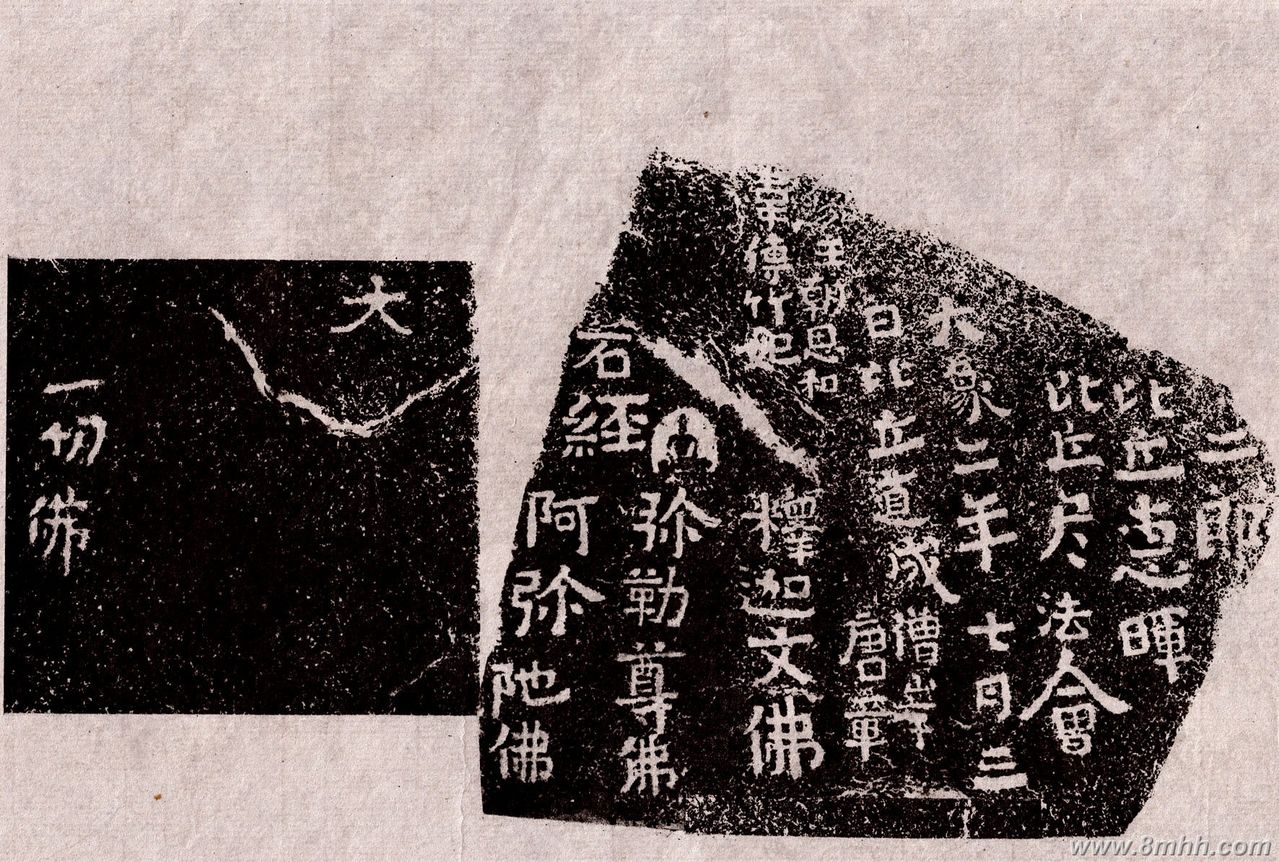 二郎
比丘惠暉
比丘尼法會
大象二年七月三
日比丘道成
僧
唐章
主朝思和
韋傳竹
釋迦文佛
弥勒尊佛
阿弥陁佛
石經
大
一切佛
www.8mhh.com